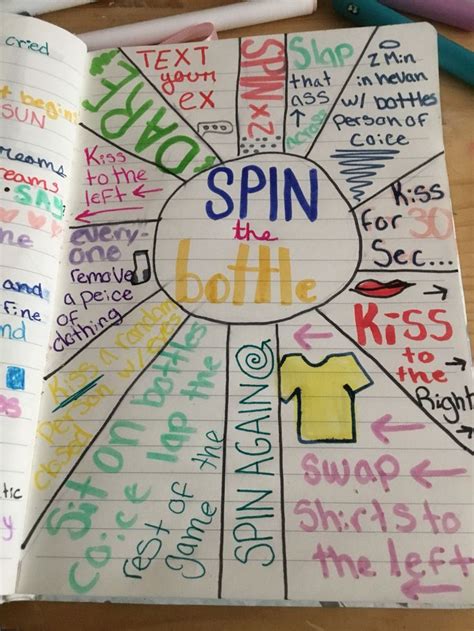 cried
SUN
SAY
and
fine
SPIN
the
bottle
DARE
TEXT
your
ex
SPIN
2x
Slap
that
ass
across
2 Min
in hevan
w/ bottles
person of
coice
Kiss
for 30
Sec...
Kiss
to the
Right
swap
Shirts to
the left
SPIN AGAIN
Sit on bottles
coice lap the
rest of the
game
Kiss a random
person w/ eyes
closed
every-
one
remove
a peice
of
clothing
Kiss
to the
left